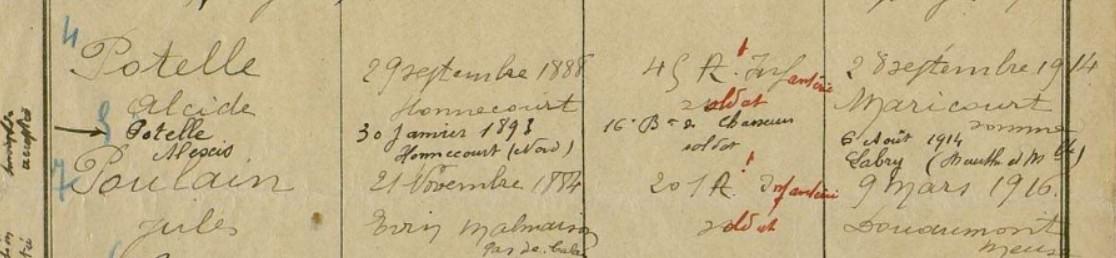 4 Potelle 29 septembre 1888 45 R. Infanterie 28 septembre 1914
Alcide Honnecourt soldat Maricourt
Somme
5 Potelle 30 Janvier 1893 16e Bon de Chasseurs 6 Août 1914
Alexis Honnecourt (Nord) soldat Labry (Meurthe et Mlle)
7 Poulain 21 Novembre 1884 201 R. Infanterie 9 Mars 1916
Jules Evin Malmaison soldat Douaumont
Pas de Calais Meuse